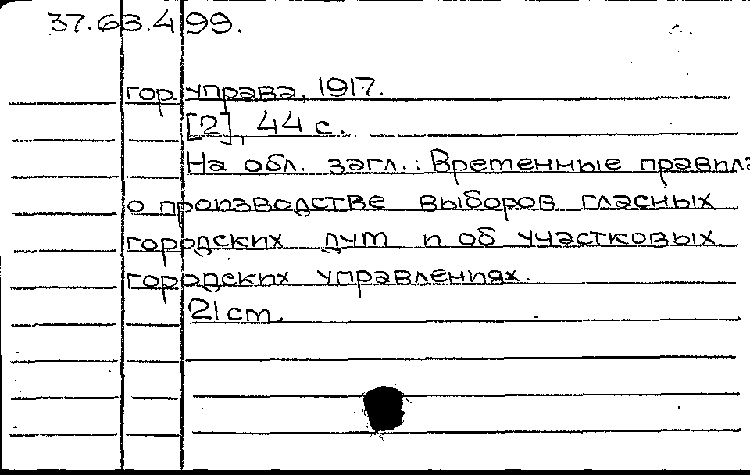 37.63.4.99.
гор. управа, 1917.
[2], 44 с.
На обл. загл.: Временные правила
о производстве выборов гласных
городских дум и об участковых
городских управлениях.
21 cm.